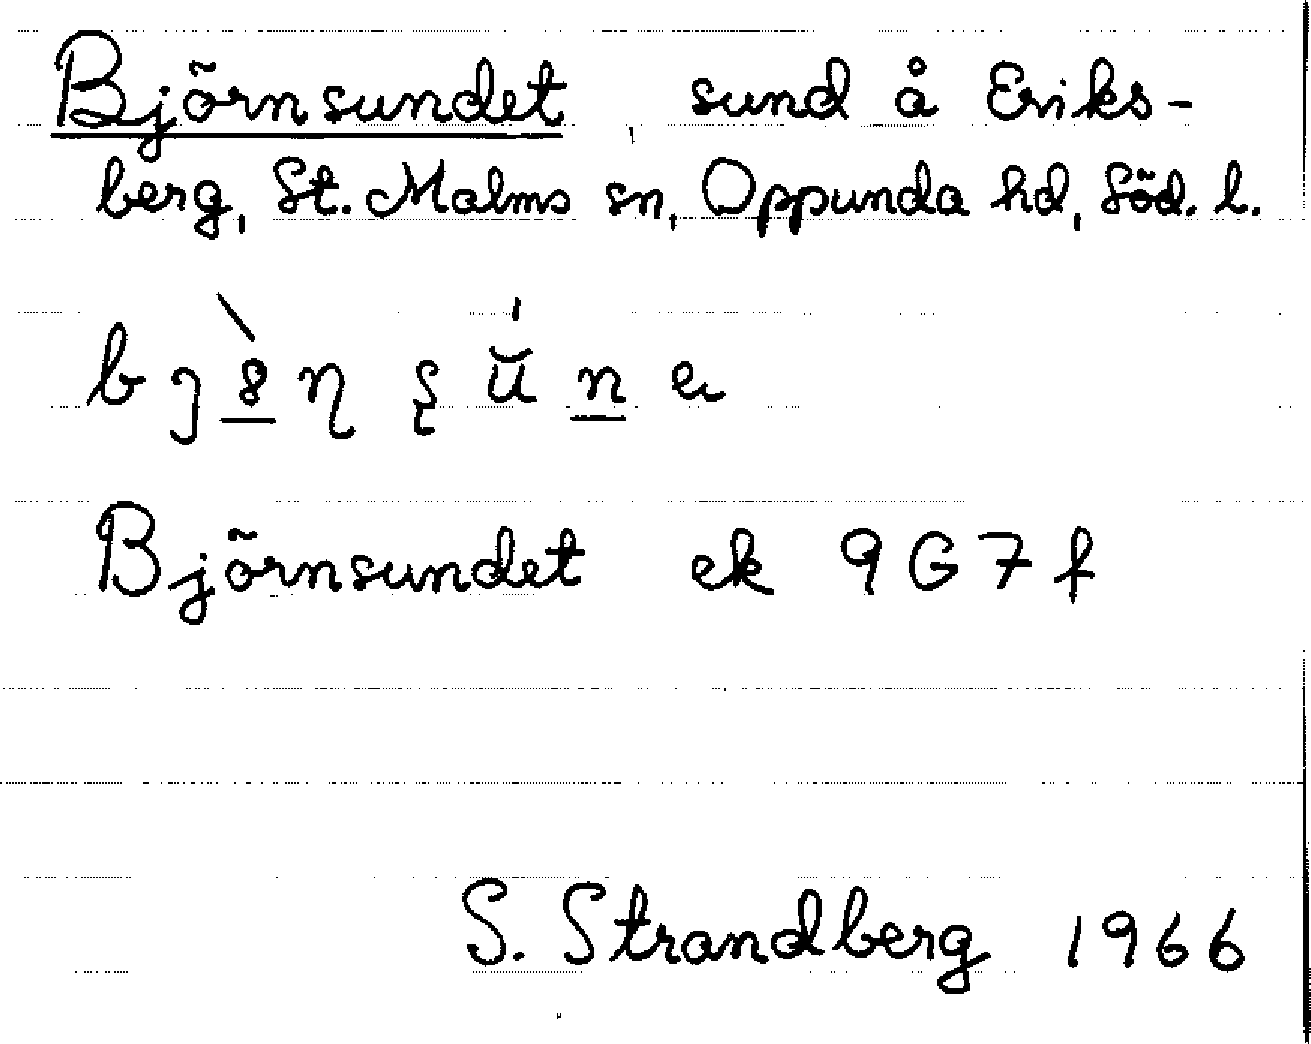 Björnsundet, sund å Eriks-
berg, St. Malms sn, Oppunda hd, Söd. l.
Björnsundet ek 9G7f
S. Strandberg 1966